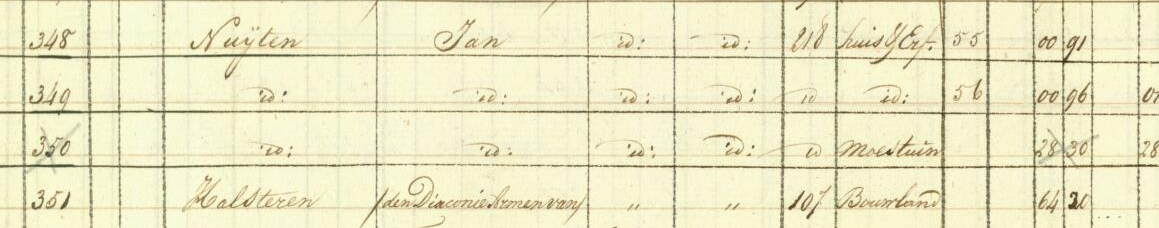 348 Nuÿten Jan id: id: 218 huis & Erf. 55 00 91
349 id: id: id: id: id id: 56 00 96
350 id: id: id: id: id Moestuin 28 30 28
351 Halsteren /den Diaconie Armen van/ " " 107 Bouwland 64 20